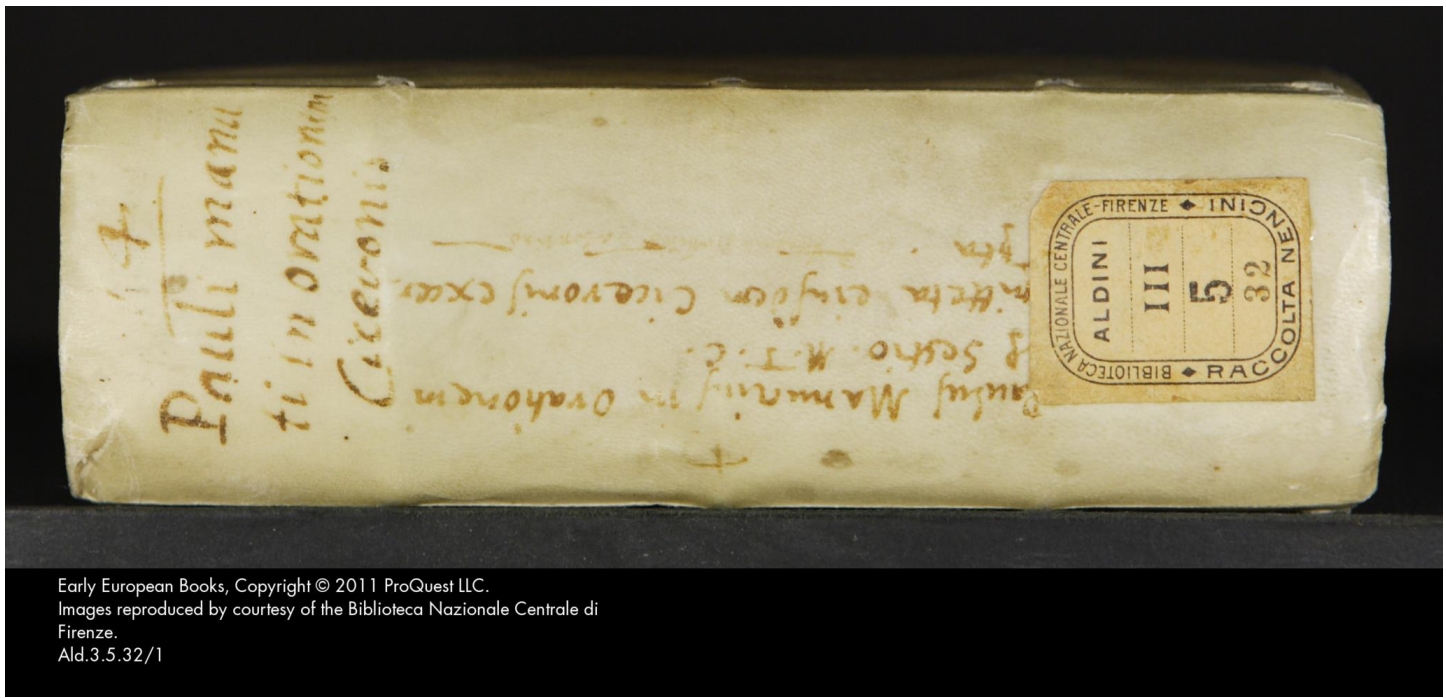 4
Pauli manu
ti in orationem
Ciceronis
Paulus Manutius in Orationem
P Sestio. M. T. C.
eiusdem Ciceronis
BIBLIOTECA NAZIONALE CENTRALE-FIRENZE ◆
RACCOLTA NENCINI ◆
ALDINI
III
5
32
Early European Books, Copyright © 2011 ProQuest LLC.
Images reproduced by courtesy of the Biblioteca Nazionale Centrale di
Firenze.
Ald.3.5.32/1